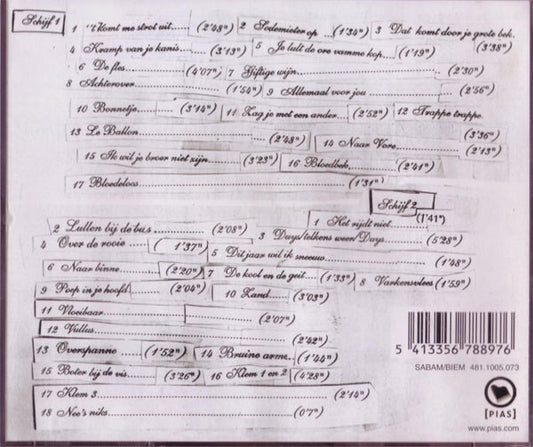 Schijf 1
1 't Komt me strot uit..... (2'48") 2 Sodemieter op.... (1'34") 3 Dat komt door je grote bek.
4 Kramp van je kanis..... (3'13") 5 Je lult de ore vamme kop.... (1'19") (3'38")
6 De fles..... (4'07") 7 Giftige wijn..... (2'30")
8 Achterover..... (1'54") 9 Allemaal voor jou..... (2'56")
10 Bonnetje..... (3'14") 11 Zag je met een ander.... (2'52") 12 Trappe trappe
13 Le Ballon..... (2'48") (3'36")
14 Naar Vore.... (2'13")
15 Ik wil je broer niet zijn..... (3'23") 16 Bloedbek..... (2'41")
17 Bloedeloos..... (1'31")
Schijf 2
1 Het rijdt niet..... (1'41")
2 Lullen bij de bus..... (2'08")
3 Days/telkens weer/Days..... (5'28")
4 Over de rooie.... (1'37")
5 Dit jaar wil ik sneeuw..... (1'48")
6 Naar binne..... (2'20") 7 De kool en de geit.... (1'33") 8 Varkensvlees (1'59")
9 Poep in je hoofd..... (2'04") 10 Zand..... (3'03")
11 Vloeibaar..... (2'07")
12 Vullus..... (2'42")
13 Overspanne..... (1'52") 14 Bruine arme.. (1'44")
15 Boter bij de vis.... (3'26") 16 Klem 1 en 2 (4'28")
17 Klem 3..... (2'14")
18 Nee's niks..... (0'7")
5 413356 788976
SABAM/BIEM 481.1005.073
[PIAS]
www.pias.com